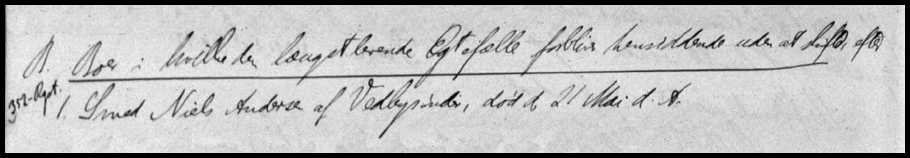 B. Boer i hvilke den længstlevende Ægtefælle forbliver hensiddende uden at skifte, efter
352-Rgst. 1. Smed Niels Andersen af Vedbysønder, död d. 21 Mai d. A.